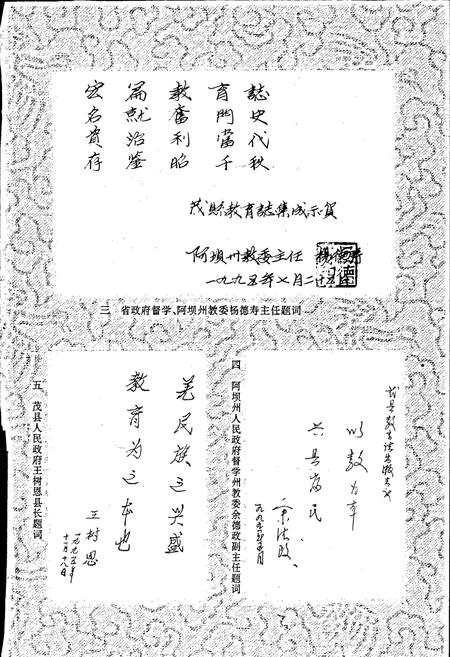 宏篇教育誌
名就奋門史
資治利當代
存鉴昭千秋
茂縣教育誌集成示賀
阿坝州教委主任 杨德寿
一九九五年七月二十五
三 省政府督学、阿坝州教委杨德寿主任题词
四 阿坝州人民政府督学州教委余德政副主任题词
以教为本
兴县富民
余德政
一九九五年五月
五 茂县人民政府王树恩县长题词
羌民族之兴盛
教育为之本也
王树恩
一九九五年
十一月十八日